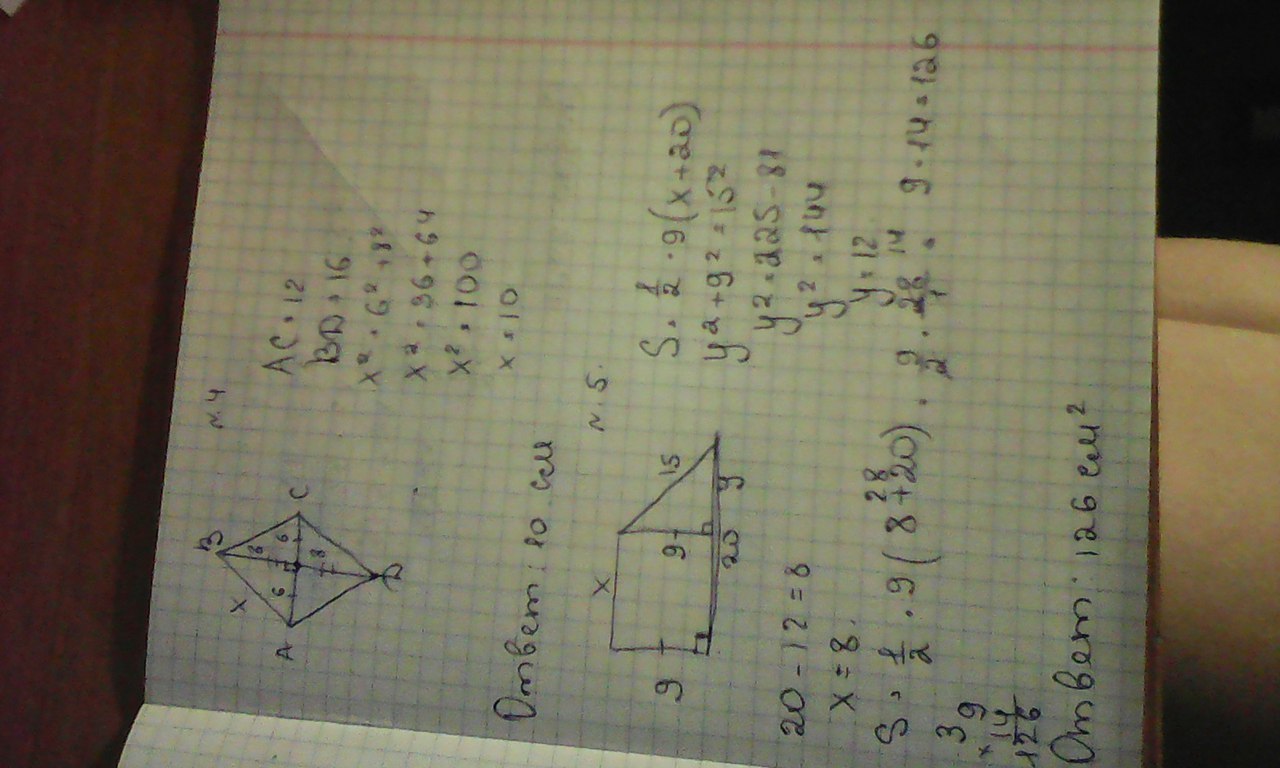 N.4
B
x
8
6
6
A
C
8
D
AC = 12
BD = 16
x² = 6² + 8²
x² = 36 + 64
x² = 100
x = 10
Ответ: 10 см
N.5.
x
9
9
15
20
y
S = 1/2 · 9(x+20)
y² + 9² = 15²
y² = 225 - 81
y² = 144
y = 12
20 - 12 = 8
x = 8.
28
S = 1/2 · 9 (8+20) = 9/2 · 28/1 = 9 · 14 = 126
14
3
9
× 14
126
Ответ: 126 см²